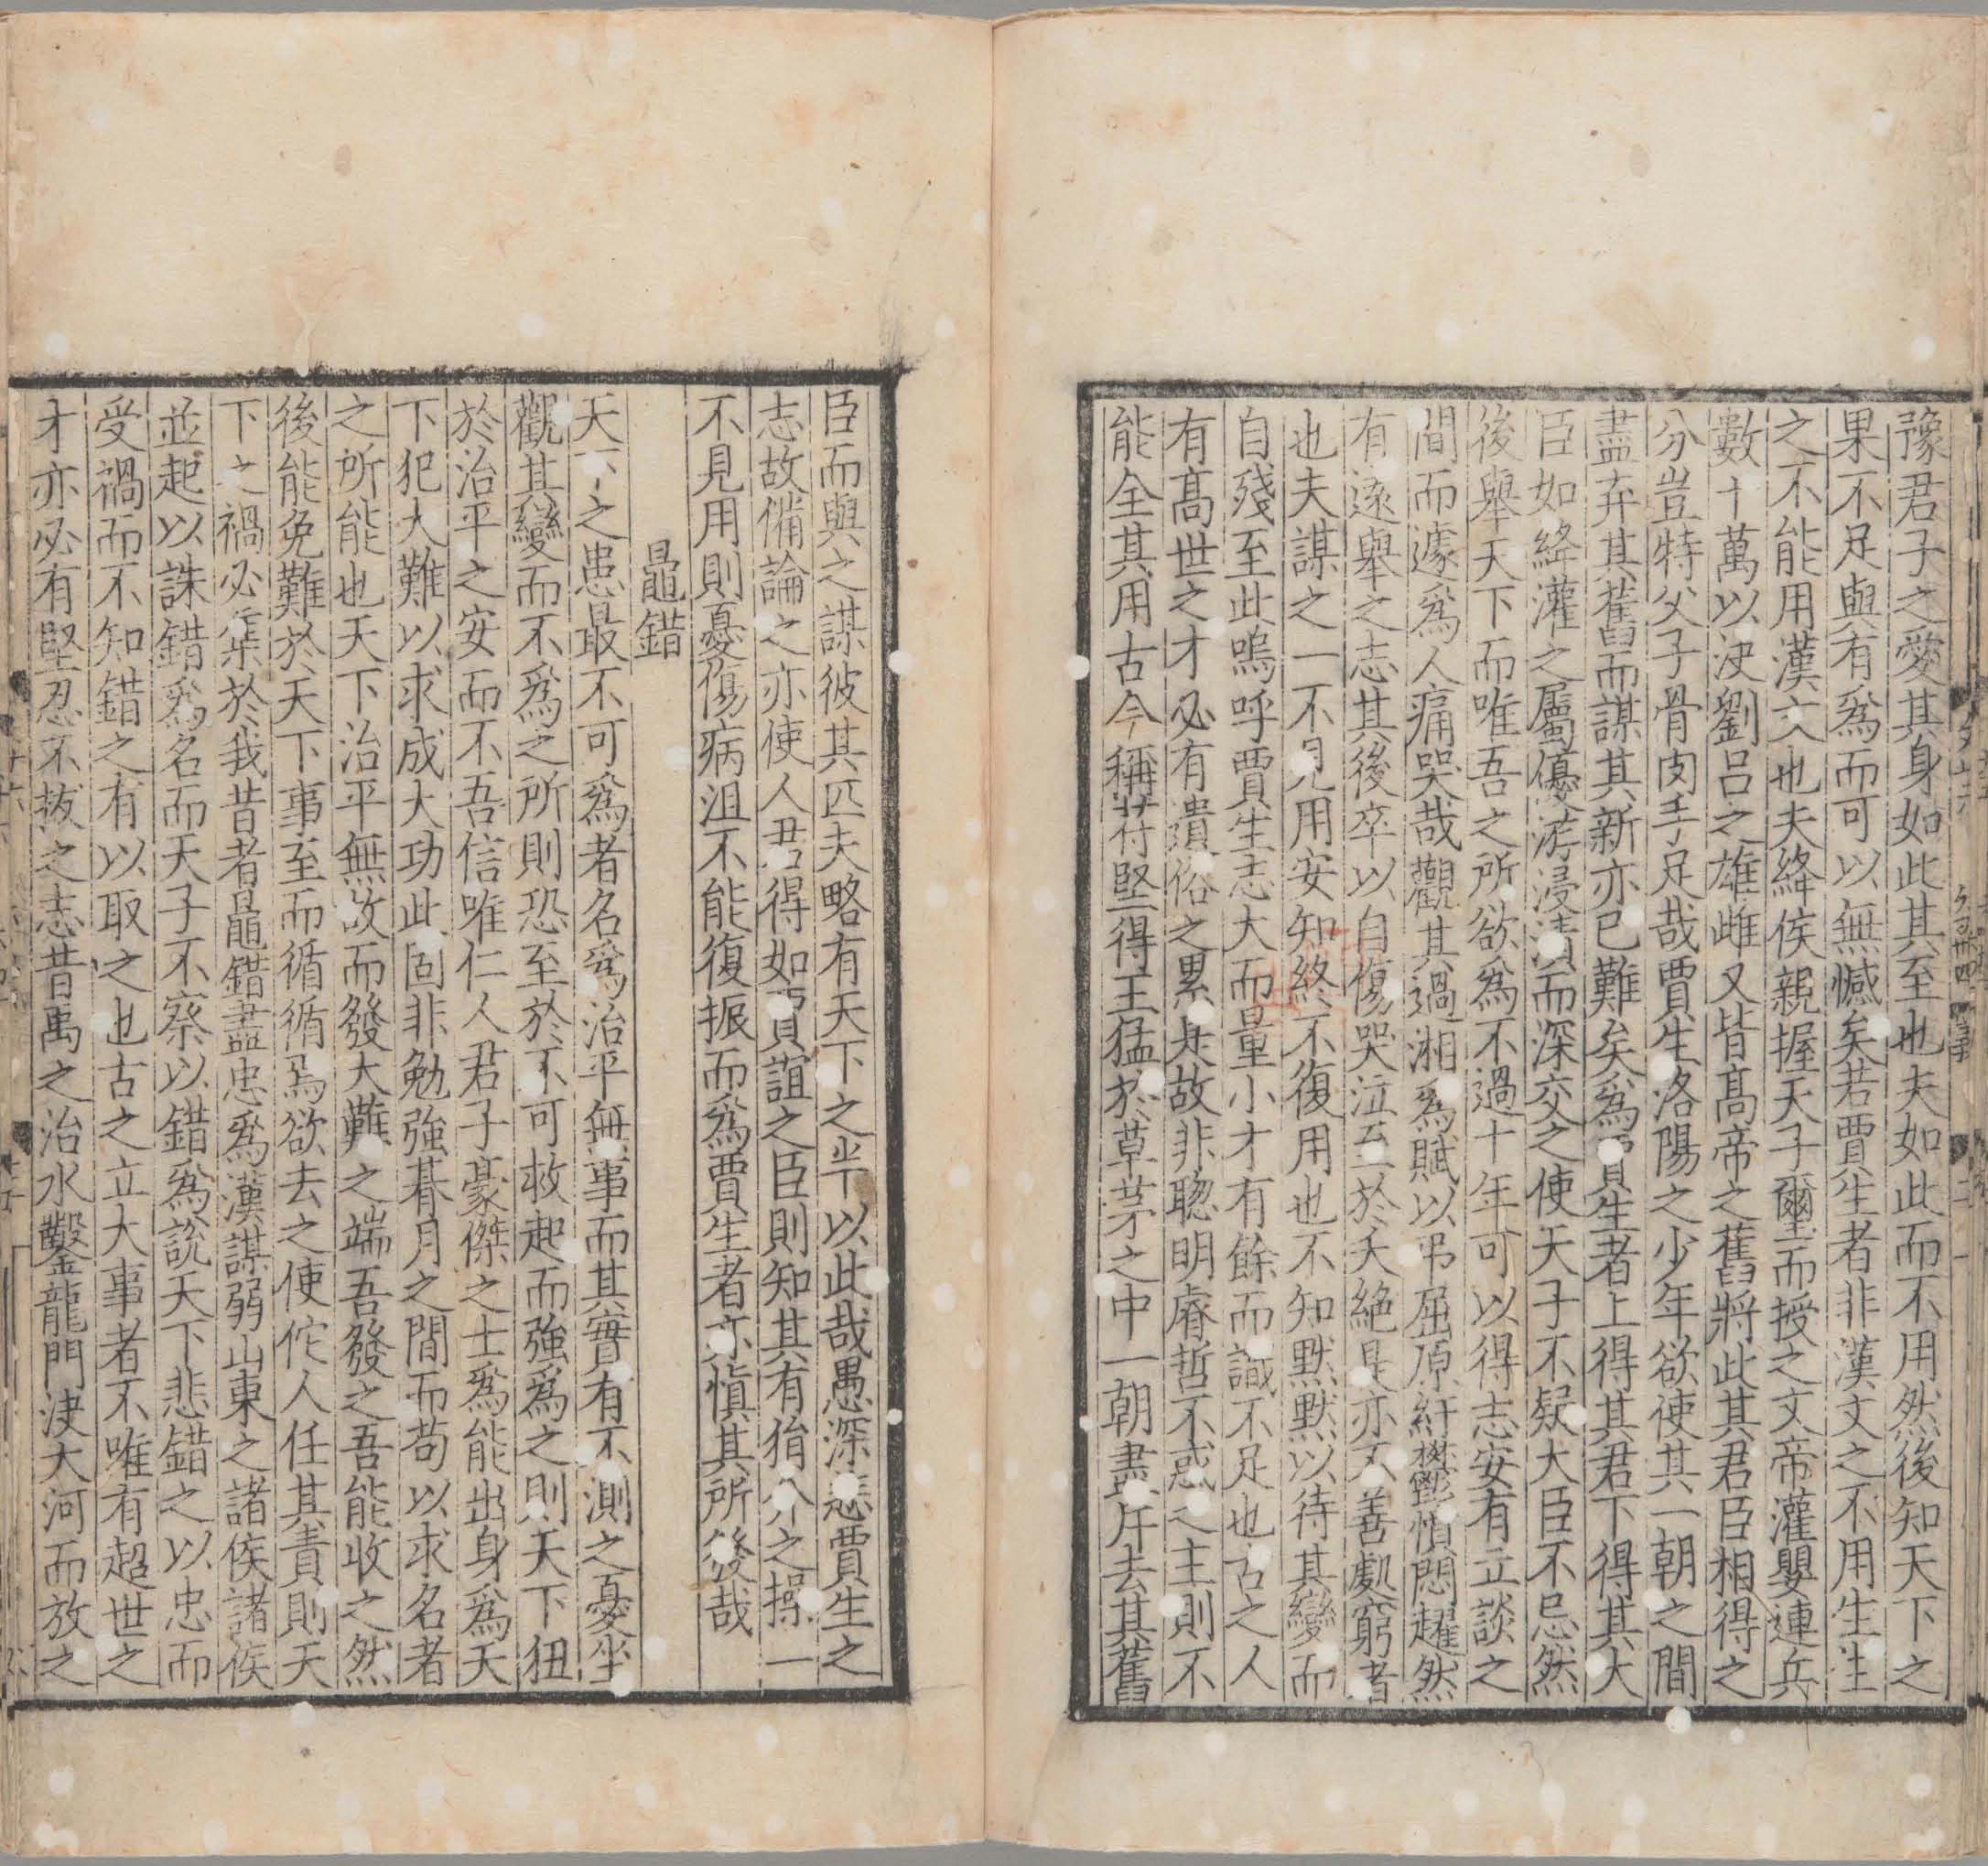 豫君子之愛其身如此其至也夫如此而不用然後知天下之
果不足與有爲而可以無憾矣若賈生者非漢文之不用生生
之不能用漢文也夫絳侯親握天子璽而授之文帝灌嬰連兵
數十萬以决劉呂之雄雌又皆髙帝之舊將此其君臣相得之
分豈特父子骨肉手足哉賈生洛陽之少年欲使其一朝之間
盡弃其舊而謀其新亦已難矣爲賈生者上得其君下得其大
臣如絳灌之屬優游浸漬而深交之使天子不疑大臣不忌然
後舉天下而唯吾之所欲爲不過十年可以得志安有立談之
間而遽爲人痛哭哉觀其過湘爲賦以弔屈原紆鬱憤悶趯然
有遠舉之志其後卒以自傷哭泣至於夭絶是亦不善處窮者
也夫謀之一不見用安知終不復用也不知默默以待其變而
自殘至此嗚呼賈生志大而量小才有餘而識不足也古之人
有髙世之才必有遺俗之累是故非聦明睿哲不惑之主則不
能全其用古今稱苻堅得王猛於草茅之中一朝盡斥去其舊
臣而與之謀彼其匹夫略有天下之半以此哉愚深悲賈生之
志故備論之亦使人君得如賈誼之臣則知其有狷介之操一
不見用則憂傷病沮不能復振而爲賈生者亦愼其所發哉
鼂錯
天下之患最不可爲者名爲治平無事而其實有不測之憂坐
觀其變而不爲之所則恐至於不可救起而強爲之則天下狃
於治平之安而不吾信唯仁人君子豪傑之士爲能出身爲天
下犯大難以求成大功此固非勉強朞月之間而苟以求名者
之所能也天下治平無故而發大難之端吾發之吾能收之然
後能免難於天下事至而循循焉欲去之使佗人任其責則天
下之禍必集於我昔者鼂錯盡忠爲漢謀弱山東之諸侯諸侯
並起以誅錯爲名而天子不察以錯爲說天下悲錯之以忠而
受禍而不知錯之有以取之也古之立大事者不唯有超世之
才亦必有堅忍不拔之志昔禹之治水鑿龍門决大河而放之